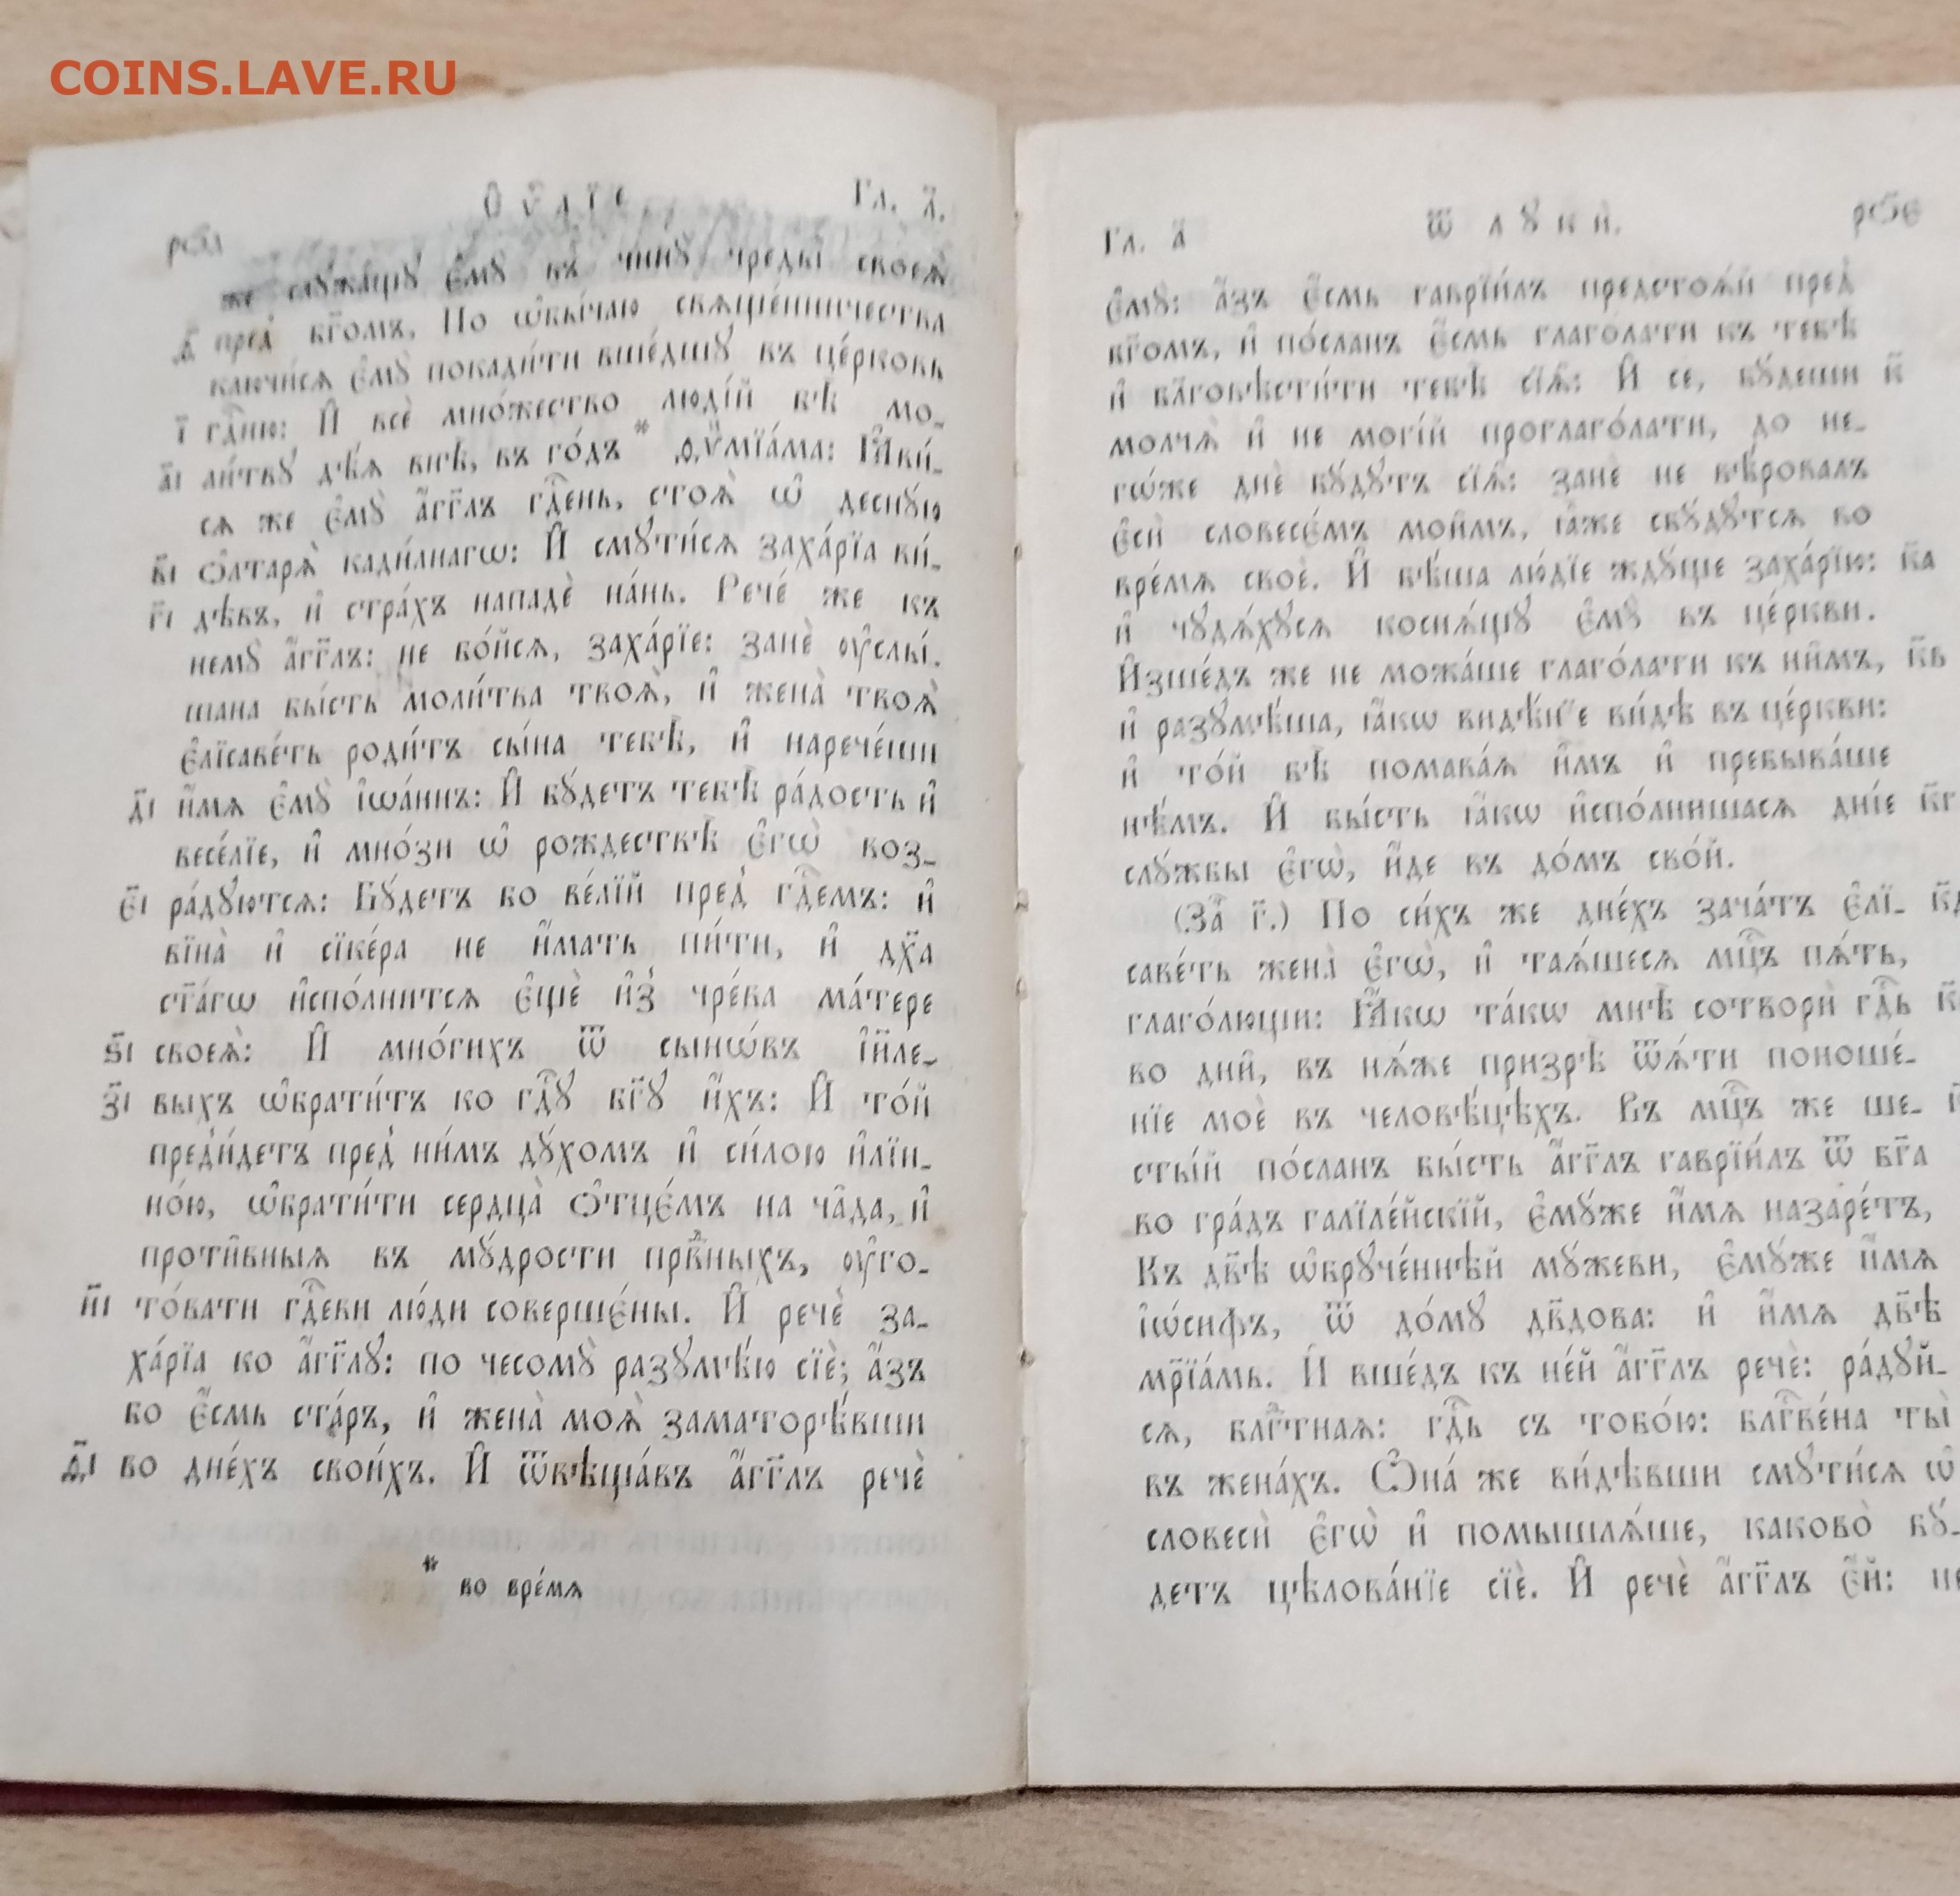 COINS.LAVE.RU
Гл. а҃.
же служа́щу є҆мꙋ̀ въ чинꙋ̀ чреды̀ своеѧ̀
ѳ҃ пред̾ бг҃омъ, По ѡ҆бы́чаю свѧще́нничества
ключи́сѧ є҆мꙋ̀ покади́ти вше́дшꙋ въ це́рковь
і҃ гдⷭ҇ню: И҆ всѐ мно́жество люді́й бѣ̀ мо-
а҃і ли́твꙋ дѣ́ѧ внѣ̀, въ го́дъ * ѳѷмїа́ма: Ꙗ҆ви́-
сѧ же є҆мꙋ̀ а҆́гг҃лъ гдⷭ҇ень, стоѧ̀ ѡ҆ деснꙋ́ю
в҃і ѻ҆лтарѧ̀ кади́лнагѡ: И҆ смꙋти́сѧ заха́рїа ви́-
г҃і дѣвъ, и҆ стра́хъ нападѐ на́нь. Рече́ же къ
немꙋ̀ а҆́гг҃лъ: не бо́йсѧ, заха́рїе: занѐ ᲂу҆слы́-
шана бы́сть моли́тва твоѧ̀, и҆ жена̀ твоѧ̀
є҆лїсаве́ть роди́тъ сы́на тебѣ̀, и҆ нарече́ши
д҃і и҆́мѧ є҆мꙋ̀ і҆ѡа́ннъ: И҆ бꙋ́детъ тебѣ̀ ра́дость и҆
весе́лїе, и҆ мно́зи ѡ҆ рождествѣ̀ є҆гѡ̀ воз-
є҃і ра́дꙋютсѧ: Бꙋ́детъ бо ве́лїй пред̾ гдⷭ҇емъ: и҆
вїна̀ и҆ сїке́ра не и҆́мать пи́ти, и҆ дх҃а
ст҃а́гѡ и҆спо́лнитсѧ є҆щѐ и҆з̾ чре́ва ма́тере
ѕ҃і своеѧ̀: И҆ мно́гихъ ѿ сынѡ́въ і҆и҃ле-
з҃і выхъ ѡ҆брати́тъ ко гдⷭ҇ꙋ бг҃ꙋ и҆́хъ: И҆ то́й
пред̾и́детъ пред̾ ни́мъ дꙋ́хомъ и҆ си́лою и҆лїи-
но́ю, ѡ҆брати́ти сердца̀ ѻ҆тцє́мъ на ча̑да, и҆
проти̑вныѧ въ мꙋ́дрости првⷣныхъ, ᲂу҆го-
и҃і то́вати гдⷭ҇еви лю́ди совершє́ны. И҆ речѐ за-
ха́рїа ко а҆́гг҃лꙋ: по чесомꙋ̀ разꙋмѣ́ю сїѐ; а҆́зъ
бо є҆́смь ста́ръ, и҆ жена̀ моѧ̀ заматорѣ́вши
ѳ҃і во дне́хъ свои́хъ. И҆ ѿвѣща́въ а҆́гг҃лъ речѐ
* во вре́мѧ
Гл. а҃ ѿ лꙋкѝ. рѯ҃є
є҆мꙋ̀: а҆́зъ є҆́смь гаврїи́лъ предстоѧ́й пред̾
бг҃омъ, и҆ по́сланъ є҆́смь глаго́лати къ тебѣ̀
и҆ бл҃говѣсти́ти тебѣ̀ сїѧ̑: И҆ се, бꙋ́деши к҃
молчѧ̀ и҆ не моги́й проглаго́лати, до не-
гѡ́же днѐ бꙋ́дꙋтъ сїѧ̑: занѐ не вѣ́ровалъ
є҆сѝ словесє́мъ мои̑мъ, ꙗ҆̀же сбꙋ́дꙋтсѧ во
вре́мѧ своѐ. И҆ бѣ́ша лю́дїе ждꙋ́ще заха́рїю: к҃а
и҆ чꙋдѧ́хꙋсѧ коснѧ́щꙋ є҆мꙋ̀ въ це́ркви.
И҆зше́дъ же не можа́ше глаго́лати къ ни̑мъ, к҃в
и҆ разꙋмѣ́ша, ꙗ҆́кѡ видѣ́нїе ви́дѣ въ це́ркви:
и҆ то́й бѣ̀ помава́ѧ и҆̀мъ и҆ пребыва́ше
нѣ́мъ. И҆ бы́сть ꙗ҆́кѡ и҆спо́лнишасѧ дні́е к҃г
слꙋ́жбы є҆гѡ̀, и҆́де въ до́мъ сво́й.
(За҄ г҃.) По си́хъ же дне́хъ зача́тъ є҆лї- к҃д
саве́ть жена̀ є҆гѡ̀, и҆ таѧ́шесѧ мцⷭ҇ъ пѧ́ть,
глаго́лющи: Ꙗ҆́кѡ та́кѡ мнѣ̀ сотворѝ гдⷭ҇ь
во дни̑, въ нѧ́же призрѣ̀ ѿѧ́ти поноше́-
нїе моѐ въ человѣ́цѣхъ. Въ мцⷭ҇ъ же ше-
сты́й по́сланъ бы́сть а҆́гг҃лъ гаврїи́лъ ѿ бг҃а
во гра́дъ галїле́йскїй, є҆мꙋ́же и҆́мѧ назаре́тъ,
Къ дв҃ѣ ѡ҆брꙋче́ннѣй мꙋ́жеви, є҆мꙋ́же и҆́мѧ
і҆ѡ́сифъ, ѿ до́мꙋ дв҃дова: и҆ и҆́мѧ дв҃ѣ
мр҃їа́мь. И҆ вше́дъ къ не́й а҆́гг҃лъ речѐ: ра́дꙋй-
сѧ, блгⷣтнаѧ: гдⷭ҇ь съ тобо́ю: блгⷭ҇ве́на ты̀
въ жена́хъ. Ѻ҆на́ же ви́дѣвши смꙋти́сѧ ѡ҆
словесѝ є҆гѡ̀ и҆ помышлѧ́ше, каково̀ бꙋ́-
детъ цѣлова́нїе сїѐ. И҆ речѐ а҆́гг҃лъ є҆́й: не